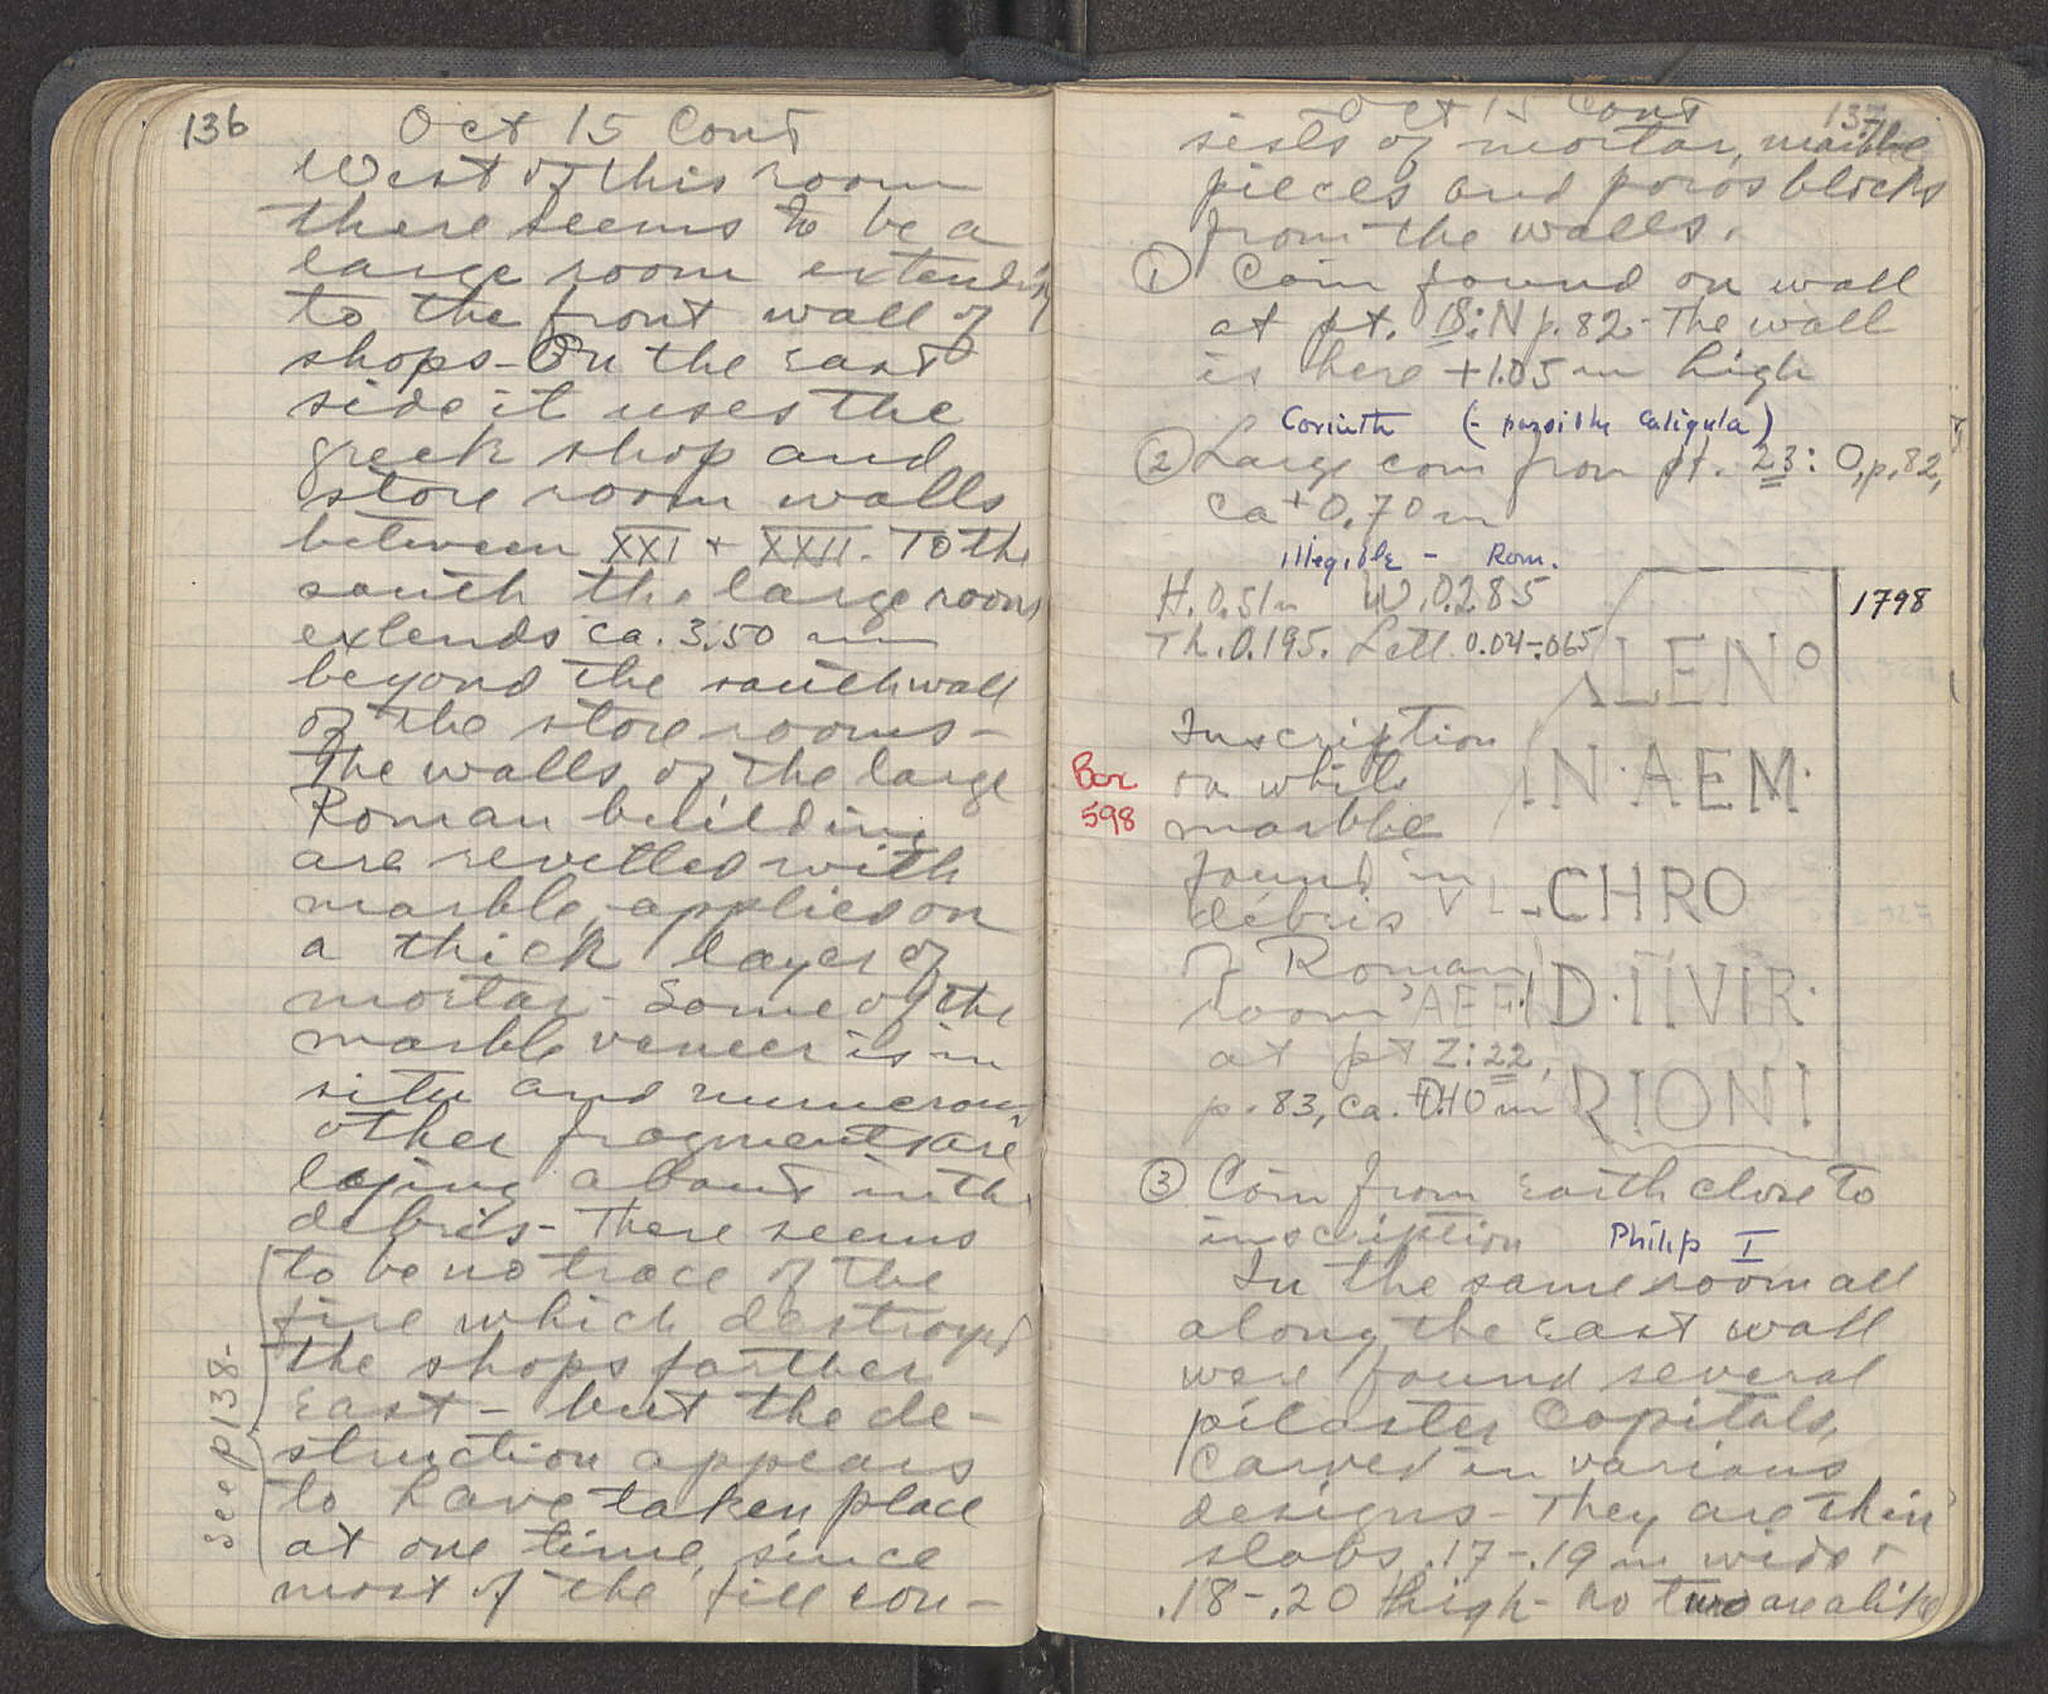 136
Oct 15 Cont
West of this room
there seems to be a
large room extending
to the front wall of
shops - On the East
side it uses the
greek shop and
store room walls
between XXI + XXII. To the
south the large room
extends ca. 3.50 m
beyond the south wall
of the store rooms -
The walls of the large
Roman building
are revetted with
marble, applied on
a thick layer of
mortar - Some of the
marble veneer is in
situ and numerous
other fragments are
lying about in the
debris - There seems
to be no trace of the
fire which destroyed
the shops farther
East - but the de-
struction appears
to have taken place
at one time, since
most of the fill con-
See p 138-
137
Oct 15 Cont
sists of mortar, marble
pieces and poros blocks
from the walls.
① Coin found on wall
at pt. 18:N p. 82 - The wall
is here +1.05 m high
Corinth (- possible Caligula)
② Large coin from pt. 23: O, p. 82,
ca +0.70 m
illegible - Rom.
H. 0.51 m W. 0.285
Th. 0.195. Lett. 0.04-.065
1798
LENO
IN·AEM·
CHRO
AEF· ID·IIVIR·
RIONI
Inscription
on white
marble
found in
débris
of Roman
room
at pt Z:22,
p. 83, ca. +0.40 m
Box
598
③ Coin from earth close to
inscription Philip I
In the same room all
along the East wall
were found several
pilaster Capitals,
carved in various
designs - They are thin
slabs .17-.19 m wide +
.18-.20 high - no two are alike